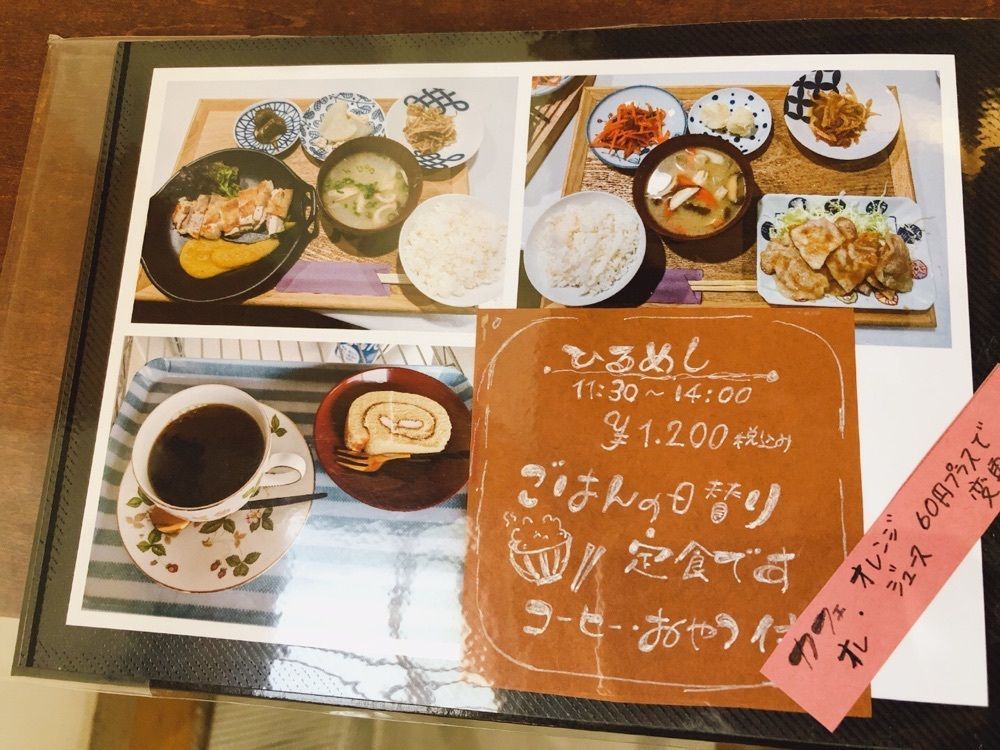 ひるめし
11:30～14:00
¥1.200 税込み
ごはんの日替り
定食です
コーヒー・おやつ付
カフェオレ・オレンジジュース 60円プラスで